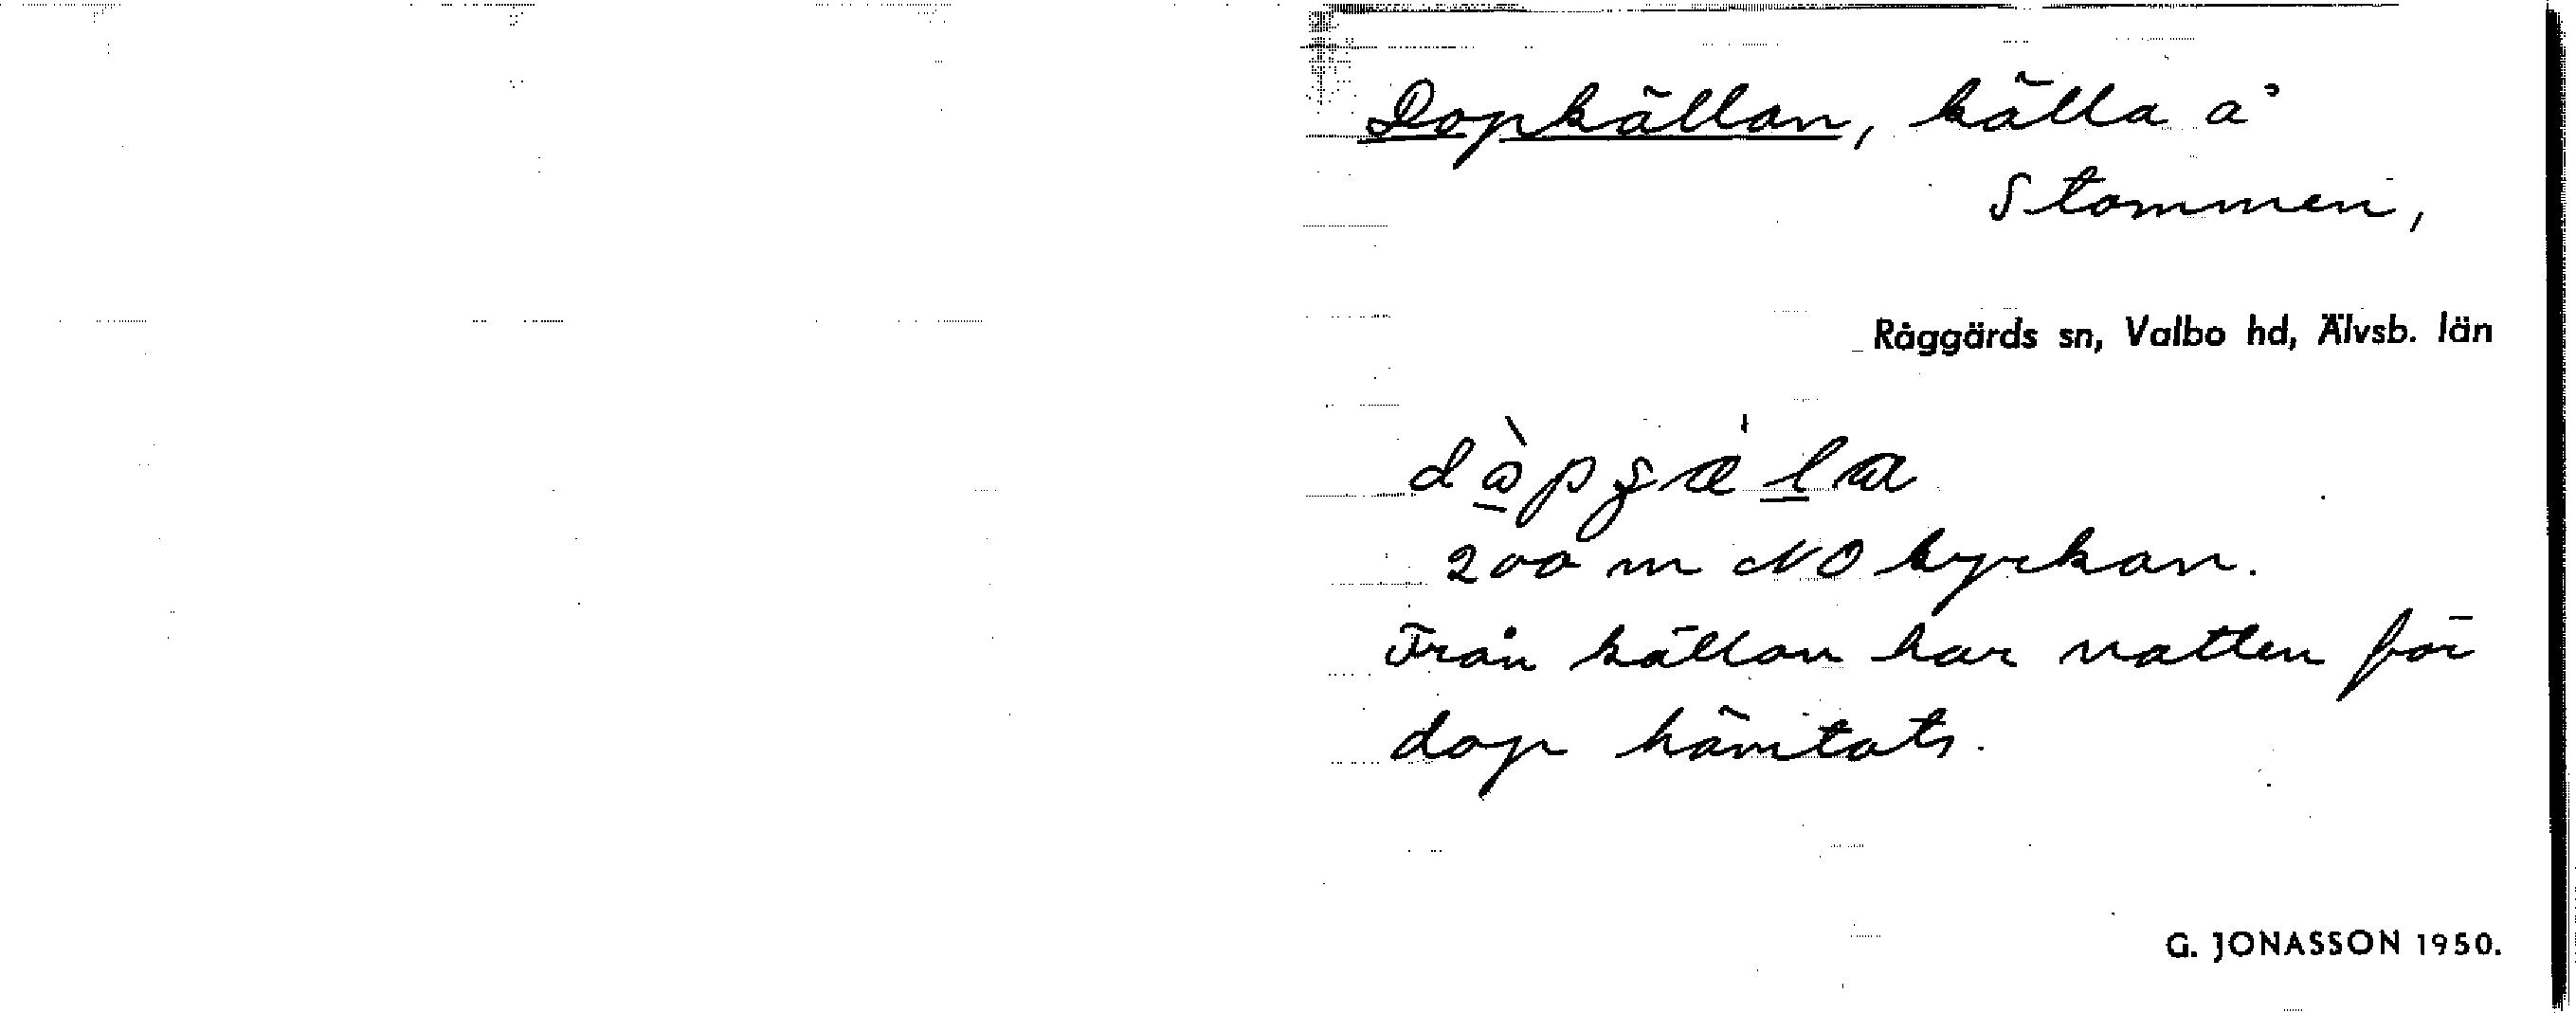 Dopkällan, källa å
Stommen,
Råggärds sn, Valbo hd, Älvsb. län
200 m NO kyrkan.
Från källan har vatten för
dop hämtats.
G. JONASSON 1950.